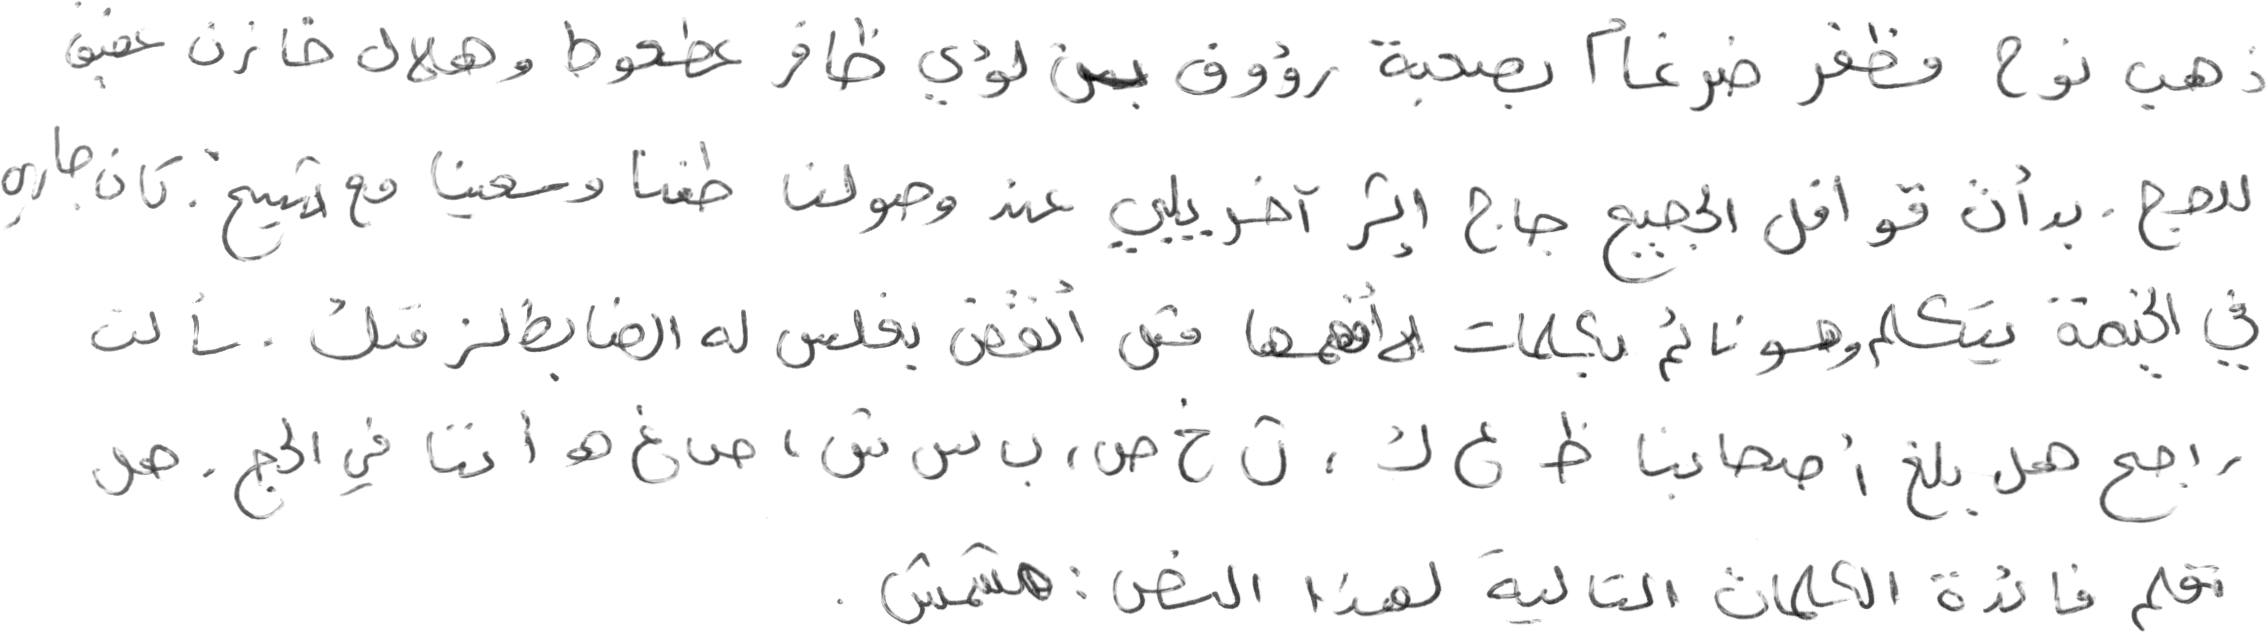 ذهب نوح مظفر ضرغام بصحبة رؤوف بن لؤي ظافر عطعوط وهلال خازن عفيف
للحج. بدأت قوافل الحجيج حاج إثر آخر يلبي عند وصولنا طفنا وسعينا مع الشيخ. كان جاره
في الخيمة يتكلم وهو نائم بكلمات لا أفهمها مثل أنقض بفلس له الضابط لزمتك. سألت
راجح هل بلغ أصحابنا ظ ع ك، ق خ ص، ب س ش، ص غ ه أننا في الحج. هل
تعلم فائدة الكلمات التالية لهذا النص: مشمش.